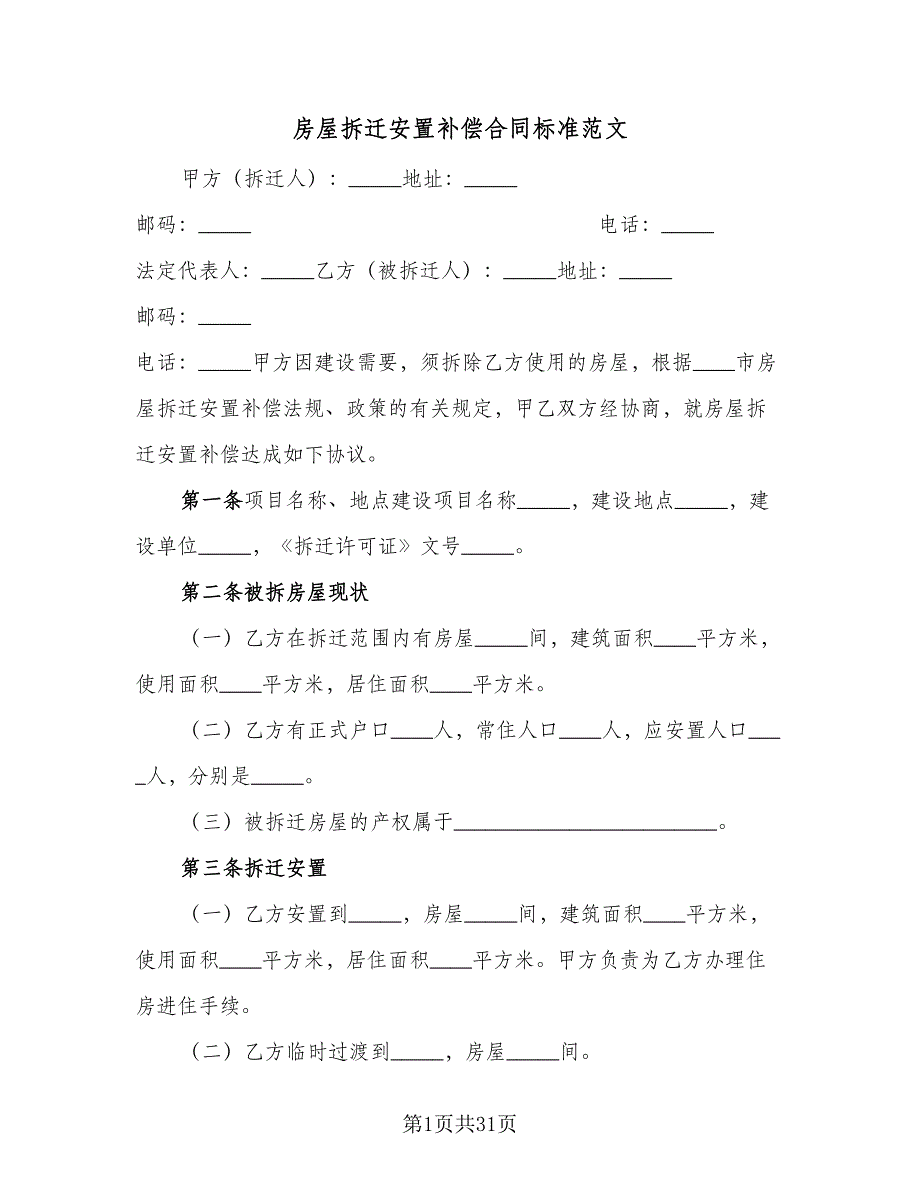 房屋拆迁安置补偿合同标准范文
甲方（拆迁人）：_____地址：_____
邮码：_____ 电话：_____
法定代表人：_____乙方（被拆迁人）：_____地址：_____
邮码：_____
电话：_____甲方因建设需要，须拆除乙方使用的房屋，根据____市房
屋拆迁安置补偿法规、政策的有关规定，甲乙双方经协商，就房屋拆
迁安置补偿达成如下协议。
第一条项目名称、地点建设项目名称_____，建设地点_____，建
设单位_____，《拆迁许可证》文号_____。
第二条被拆房屋现状
（一）乙方在拆迁范围内有房屋_____间，建筑面积____平方米，
使用面积____平方米，居住面积____平方米。
（二）乙方有正式户口____人，常住人口____人，应安置人口___
_人，分别是_____。
（三）被拆迁房屋的产权属于_________________________。
第三条拆迁安置
（一）乙方安置到_____，房屋_____间，建筑面积____平方米，
使用面积____平方米，居住面积____平方米。甲方负责为乙方办理住
房进住手续。
（二）乙方临时过渡到_____，房屋_____间。
第1页共31页